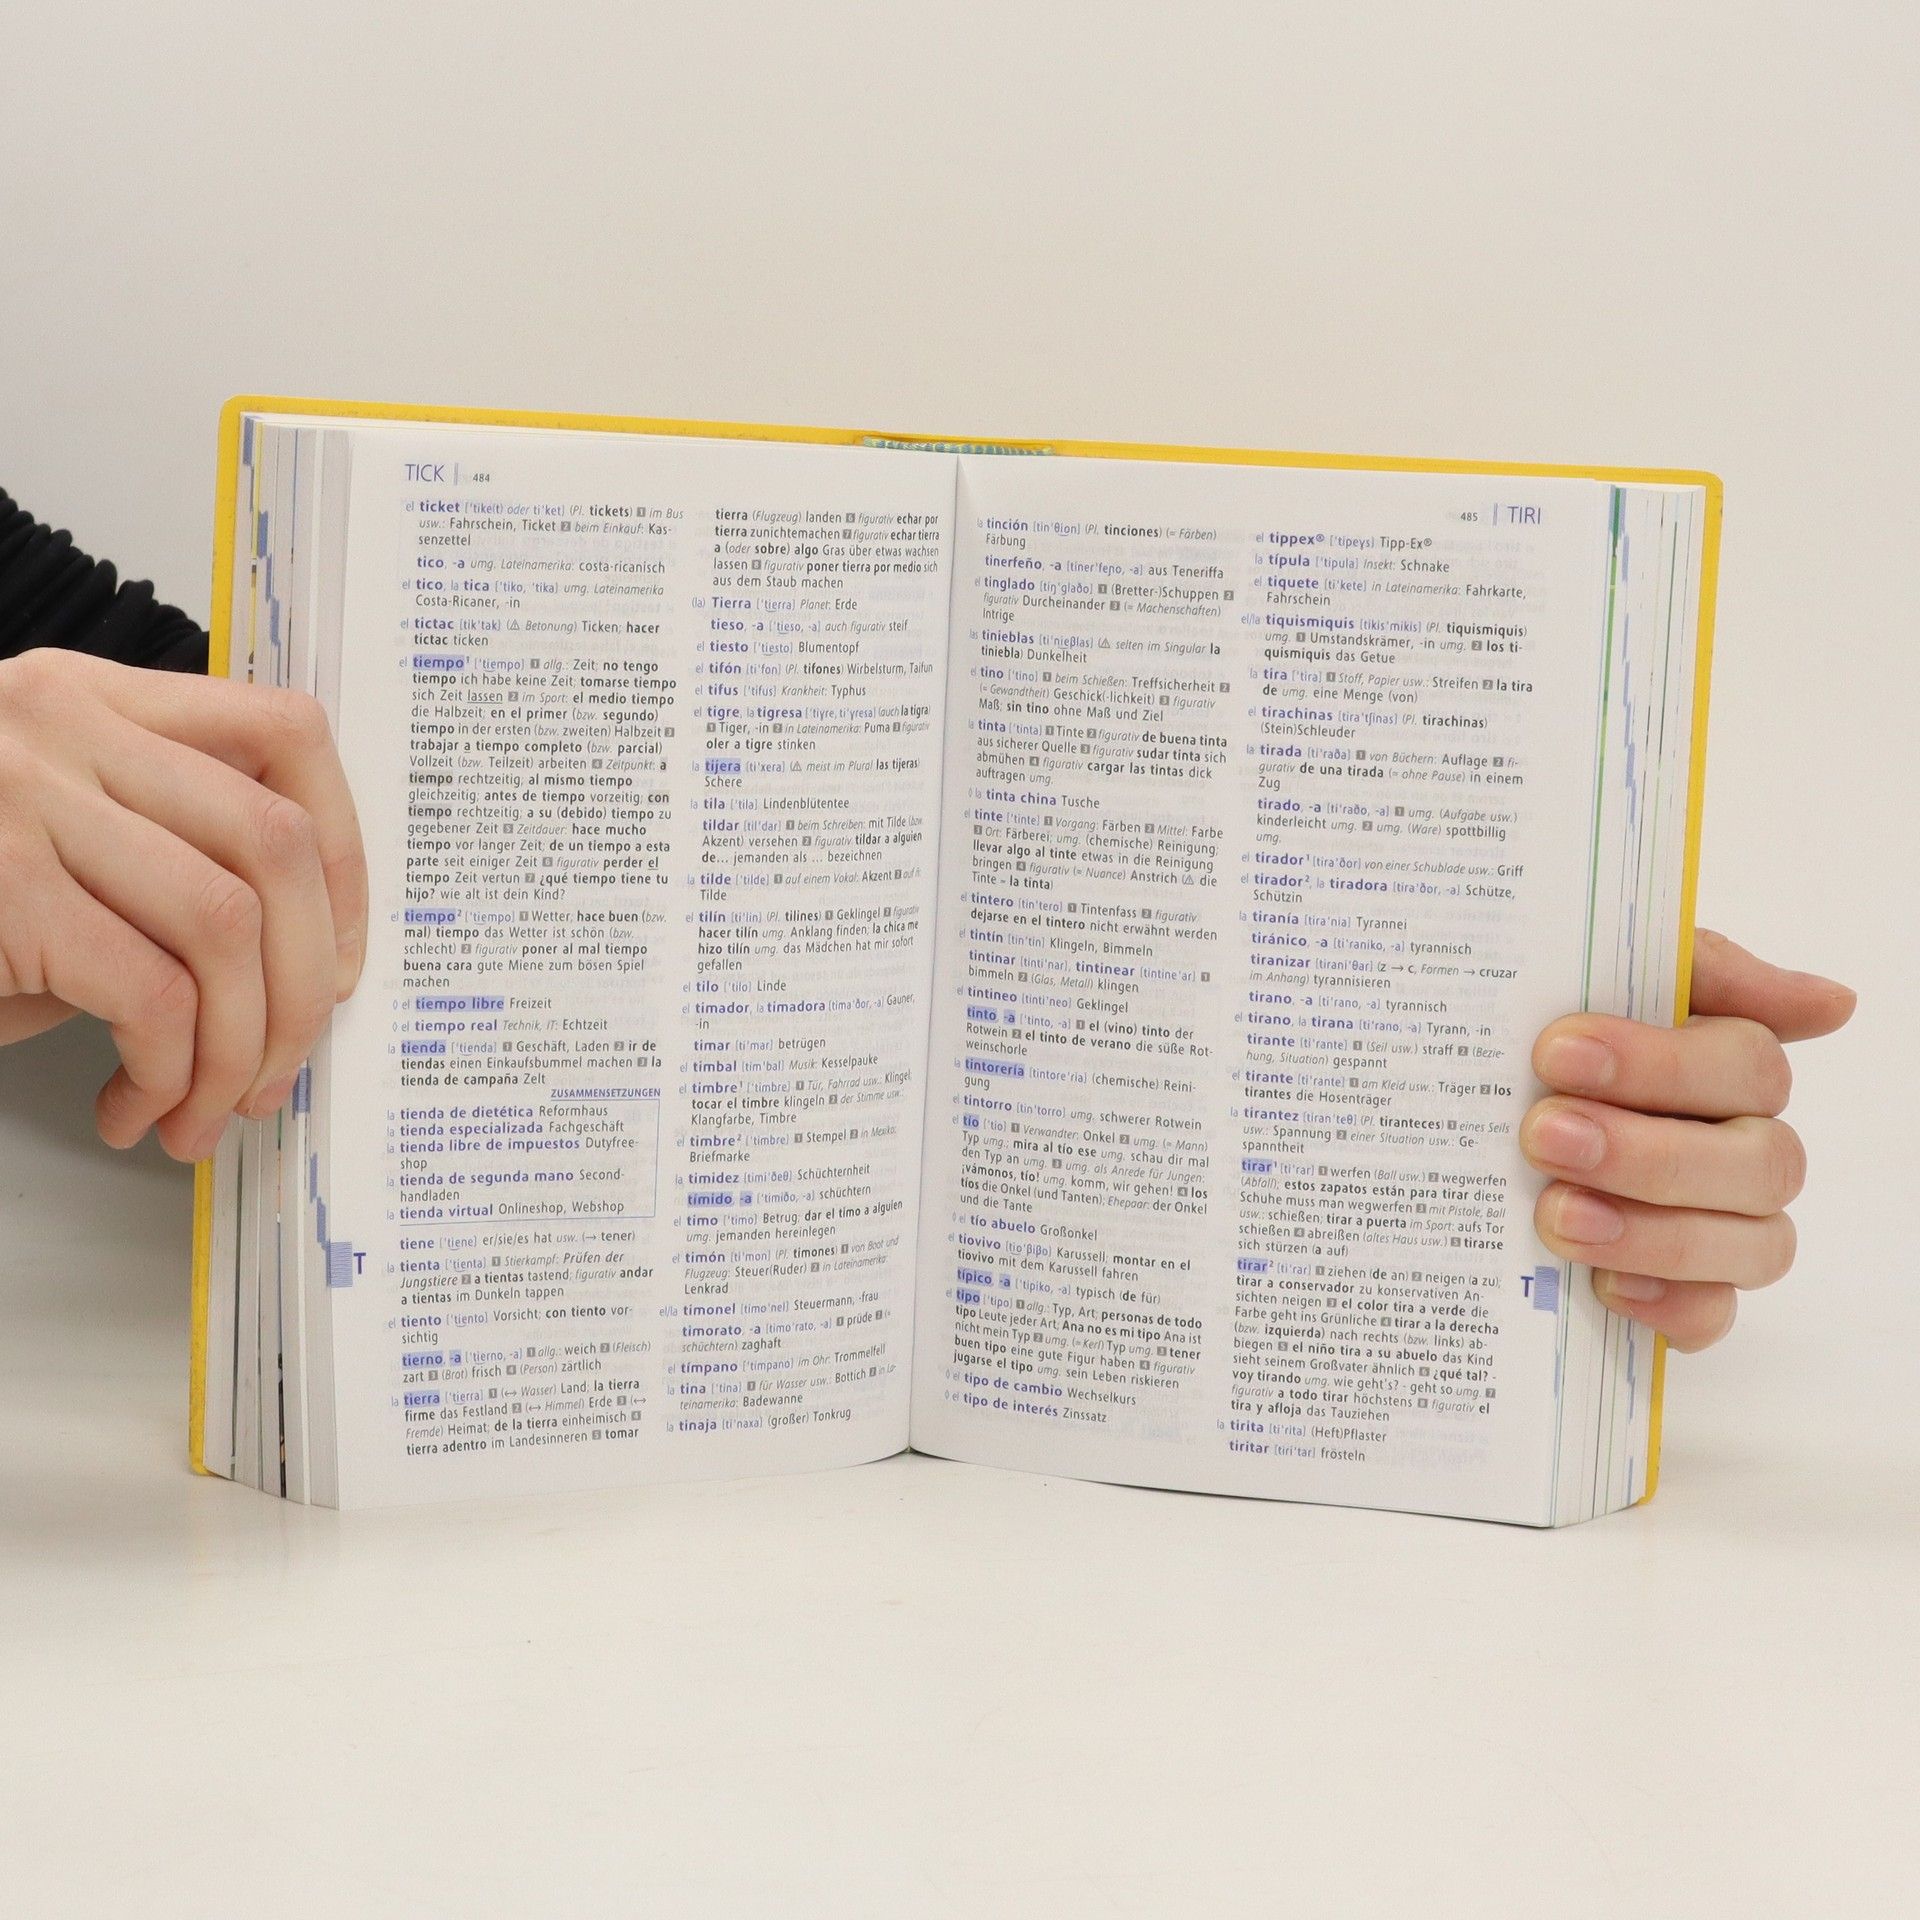 TICK 484
el ticket ['tike(t) oder ti'ket] (Pl. tickets) 1 im Bus
usw.: Fahrschein, Ticket 2 beim Einkauf: Kas-
senzettel
tico, -a umg. Lateinamerika: costa-ricanisch
el tico, la tica ['tiko, 'tika] umg. Lateinamerika
Costa-Ricaner, -in
el tictac [tik'tak] (⚠ Betonung) Ticken; hacer
tictac ticken
el tiempo¹ ['tiempo] 1 allg.: Zeit; no tengo
tiempo ich habe keine Zeit; tomarse tiempo
sich Zeit lassen 2 im Sport: el medio tiempo
die Halbzeit; en el primer (bzw. segundo)
tiempo in der ersten (bzw. zweiten) Halbzeit 3
trabajar a tiempo completo (bzw. parcial)
Vollzeit (bzw. Teilzeit) arbeiten 4 Zeitpunkt: a
tiempo rechtzeitig; al mismo tiempo
gleichzeitig; antes de tiempo vorzeitig; con
tiempo rechtzeitig; a su (debido) tiempo zu
gegebener Zeit 5 Zeitdauer: hace mucho
tiempo vor langer Zeit; de un tiempo a esta
parte seit einiger Zeit 6 figurativ perder el
tiempo Zeit vertun 7 ¿qué tiempo tiene tu
hijo? wie alt ist dein Kind?
el tiempo² ['tiempo] 1 Wetter; hace buen (bzw.
mal) tiempo das Wetter ist schön (bzw.
schlecht) 2 figurativ poner al mal tiempo
buena cara gute Miene zum bösen Spiel
machen
◊ el tiempo libre Freizeit
◊ el tiempo real Technik, IT: Echtzeit
la tienda ['tienda] 1 Geschäft, Laden 2 ir de
tiendas einen Einkaufsbummel machen 3 la
tienda de campaña Zelt
ZUSAMMENSETZUNGEN
la tienda de dietética Reformhaus
la tienda especializada Fachgeschäft
la tienda libre de impuestos Dutyfree-
shop
la tienda de segunda mano Second-
handladen
la tienda virtual Onlineshop, Webshop
tiene ['tiene] er/sie/es hat usw. (→ tener)
la tienta ['tienta] 1 Stierkampf: Prüfen der
Jungstiere 2 a tientas tastend; figurativ andar
a tientas im Dunkeln tappen
el tiento ['tiento] Vorsicht; con tiento vor-
sichtig
tierno, -a ['tierno, -a] 1 allg.: weich 2 (Fleisch)
zart 3 (Brot) frisch 4 (Person) zärtlich
la tierra ['tierra] 1 (↔ Wasser) Land; la tierra
firme das Festland 2 (↔ Himmel) Erde 3 (↔
Fremde) Heimat; de la tierra einheimisch 4
tierra adentro im Landesinneren 5 tomar
T
tierra (Flugzeug) landen 6 figurativ echar por
tierra zunichtemachen 7 figurativ echar tierra
a (oder sobre) algo Gras über etwas wachsen
lassen 8 figurativ poner tierra por medio sich
aus dem Staub machen
(la) Tierra ['tierra] Planet: Erde
tieso, -a ['tieso, -a] auch figurativ steif
el tiesto ['tiesto] Blumentopf
el tifón [ti'fon] (Pl. tifones) Wirbelsturm, Taifun
el tifus ['tifus] Krankheit: Typhus
el tigre, la tigresa ['tiɣre, ti'ɣresa] (auch la tigra)
1 Tiger, -in 2 in Lateinamerika: Puma 3 figurativ
oler a tigre stinken
la tijera [ti'xera] (⚠ meist im Plural las tijeras)
Schere
la tila ['tila] Lindenblütentee
tildar [til'dar] 1 beim Schreiben: mit Tilde (bzw.
Akzent) versehen 2 figurativ tildar a alguien
de... jemanden als ... bezeichnen
la tilde ['tilde] 1 auf einem Vokal: Akzent 2 auf ñ:
Tilde
el tilín [ti'lin] (Pl. tilines) 1 Geklingel 2 figurativ
hacer tilín umg. Anklang finden; la chica me
hizo tilín umg. das Mädchen hat mir sofort
gefallen
el tilo ['tilo] Linde
el timador, la timadora [tima'ðor, -a] Gauner,
-in
timar [ti'mar] betrügen
el timbal [tim'bal] Musik: Kesselpauke
el timbre¹ ['timbre] 1 Tür, Fahrrad usw.: Klingel;
tocar el timbre klingeln 2 der Stimme usw.:
Klangfarbe, Timbre
el timbre² ['timbre] 1 Stempel 2 in Mexiko:
Briefmarke
la timidez [timi'ðeθ] Schüchternheit
tímido, -a ['timiðo, -a] schüchtern
el timo ['timo] Betrug; dar el timo a alguien
umg. jemanden hereinlegen
el timón [ti'mon] (Pl. timones) 1 von Boot und
Flugzeug: Steuer(Ruder) 2 in Lateinamerika:
Lenkrad
el/la timonel [timo'nel] Steuermann, -frau
timorato, -a [timo'rato, -a] 1 prüde 2 (=
schüchtern) zaghaft
el tímpano ['timpano] im Ohr: Trommelfell
la tina ['tina] 1 für Wasser usw.: Bottich 2 in La-
teinamerika: Badewanne
la tinaja [ti'naxa] (großer) Tonkrug
485 TIRI
la tinción [tin'θion] (Pl. tinciones) (= Färben)
Färbung
tinerfeño, -a [tiner'feɲo, -a] aus Teneriffa
el tinglado [tiŋ'glaðo] 1 (Bretter-)Schuppen 2
figurativ Durcheinander 3 (= Machenschaften)
Intrige
las tinieblas [ti'nieβlas] (⚠ selten im Singular la
tiniebla) Dunkelheit
el tino ['tino] 1 beim Schießen: Treffsicherheit 2
(= Gewandtheit) Geschick(-lichkeit) 3 figurativ
Maß; sin tino ohne Maß und Ziel
la tinta ['tinta] 1 Tinte 2 figurativ de buena tinta
aus sicherer Quelle 3 figurativ sudar tinta sich
abmühen 4 figurativ cargar las tintas dick
auftragen umg.
◊ la tinta china Tusche
el tinte ['tinte] 1 Vorgang: Färben 2 Mittel: Farbe
3 Ort: Färberei; umg. (chemische) Reinigung;
llevar algo al tinte etwas in die Reinigung
bringen 4 figurativ (= Nuance) Anstrich (⚠ die
Tinte = la tinta)
el tintero [tin'tero] 1 Tintenfass 2 figurativ
dejarse en el tintero nicht erwähnt werden
el tintín [tin'tin] Klingeln, Bimmeln
tintinar [tinti'nar], tintinear [tintine'ar] 1
bimmeln 2 (Glas, Metall) klingen
el tintineo [tinti'neo] Geklingel
tinto, -a ['tinto, -a] 1 el (vino) tinto der
Rotwein 2 el tinto de verano die süße Rot-
weinschorle
la tintorería [tintore'ria] (chemische) Reini-
gung
el tintorro [tin'torro] umg. schwerer Rotwein
el tío ['tio] 1 Verwandter: Onkel 2 umg. (= Mann)
Typ umg.; mira al tío ese umg. schau dir mal
den Typ an umg. 3 umg. als Anrede für Jungen:
¡vámonos, tío! umg. komm, wir gehen! 4 los
tíos die Onkel (und Tanten); Ehepaar: der Onkel
und die Tante
◊ el tío abuelo Großonkel
el tiovivo [tio'βiβo] Karussell; montar en el
tiovivo mit dem Karussell fahren
típico, -a ['tipiko, -a] typisch (de für)
el tipo ['tipo] 1 allg.: Typ, Art; personas de todo
tipo Leute jeder Art; Ana no es mi tipo Ana ist
nicht mein Typ 2 umg. (= Kerl) Typ umg. 3 tener
buen tipo eine gute Figur haben 4 figurativ
jugarse el tipo umg. sein Leben riskieren
◊ el tipo de cambio Wechselkurs
◊ el tipo de interés Zinssatz
el tippex® ['tipeɣs] Tipp-Ex®
la típula ['tipula] Insekt: Schnake
el tiquete [ti'kete] in Lateinamerika: Fahrkarte,
Fahrschein
el/la tiquismiquis [tikis'mikis] (Pl. tiquismiquis)
umg. 1 Umstandskrämer, -in umg. 2 los ti-
quismiquis das Getue
la tira ['tira] 1 Stoff, Papier usw.: Streifen 2 la tira
de umg. eine Menge (von)
el tirachinas [tira'tʃinas] (Pl. tirachinas)
(Stein)Schleuder
la tirada [ti'raða] 1 von Büchern: Auflage 2 fi-
gurativ de una tirada (= ohne Pause) in einem
Zug
tirado, -a [ti'raðo, -a] 1 umg. (Aufgabe usw.)
kinderleicht umg. 2 umg. (Ware) spottbillig
umg.
el tirador¹ [tira'ðor] von einer Schublade usw.: Griff
el tirador², la tiradora [tira'ðor, -a] Schütze,
Schützin
la tiranía [tira'nia] Tyrannei
tiránico, -a [ti'raniko, -a] tyrannisch
tiranizar [tirani'θar] (z → c, Formen → cruzar
im Anhang) tyrannisieren
tirano, -a [ti'rano, -a] tyrannisch
el tirano, la tirana [ti'rano, -a] Tyrann, -in
tirante [ti'rante] 1 (Seil usw.) straff 2 (Bezie-
hung, Situation) gespannt
el tirante [ti'rante] 1 am Kleid usw.: Träger 2 los
tirantes die Hosenträger
la tirantez [tiran'teθ] (Pl. tiranteces) 1 eines Seils
usw.: Spannung 2 einer Situation usw.: Ge-
spanntheit
tirar¹ [ti'rar] 1 werfen (Ball usw.) 2 wegwerfen
(Abfall); estos zapatos están para tirar diese
Schuhe muss man wegwerfen 3 mit Pistole, Ball
usw.: schießen; tirar a puerta im Sport: aufs Tor
schießen 4 abreißen (altes Haus usw.) 5 tirarse
sich stürzen (a auf)
tirar² [ti'rar] 1 ziehen (de an) 2 neigen (a zu);
tirar a conservador zu konservativen An-
sichten neigen 3 el color tira a verde die
Farbe geht ins Grünliche 4 tirar a la derecha
(bzw. izquierda) nach rechts (bzw. links) ab-
biegen 5 el niño tira a su abuelo das Kind
sieht seinem Großvater ähnlich 6 ¿qué tal? -
voy tirando umg. wie geht's? - geht so umg. 7
figurativ a todo tirar höchstens 8 figurativ el
tira y afloja das Tauziehen
la tirita [ti'rita] (Heft)Pflaster
tiritar [tiri'tar] frösteln
T